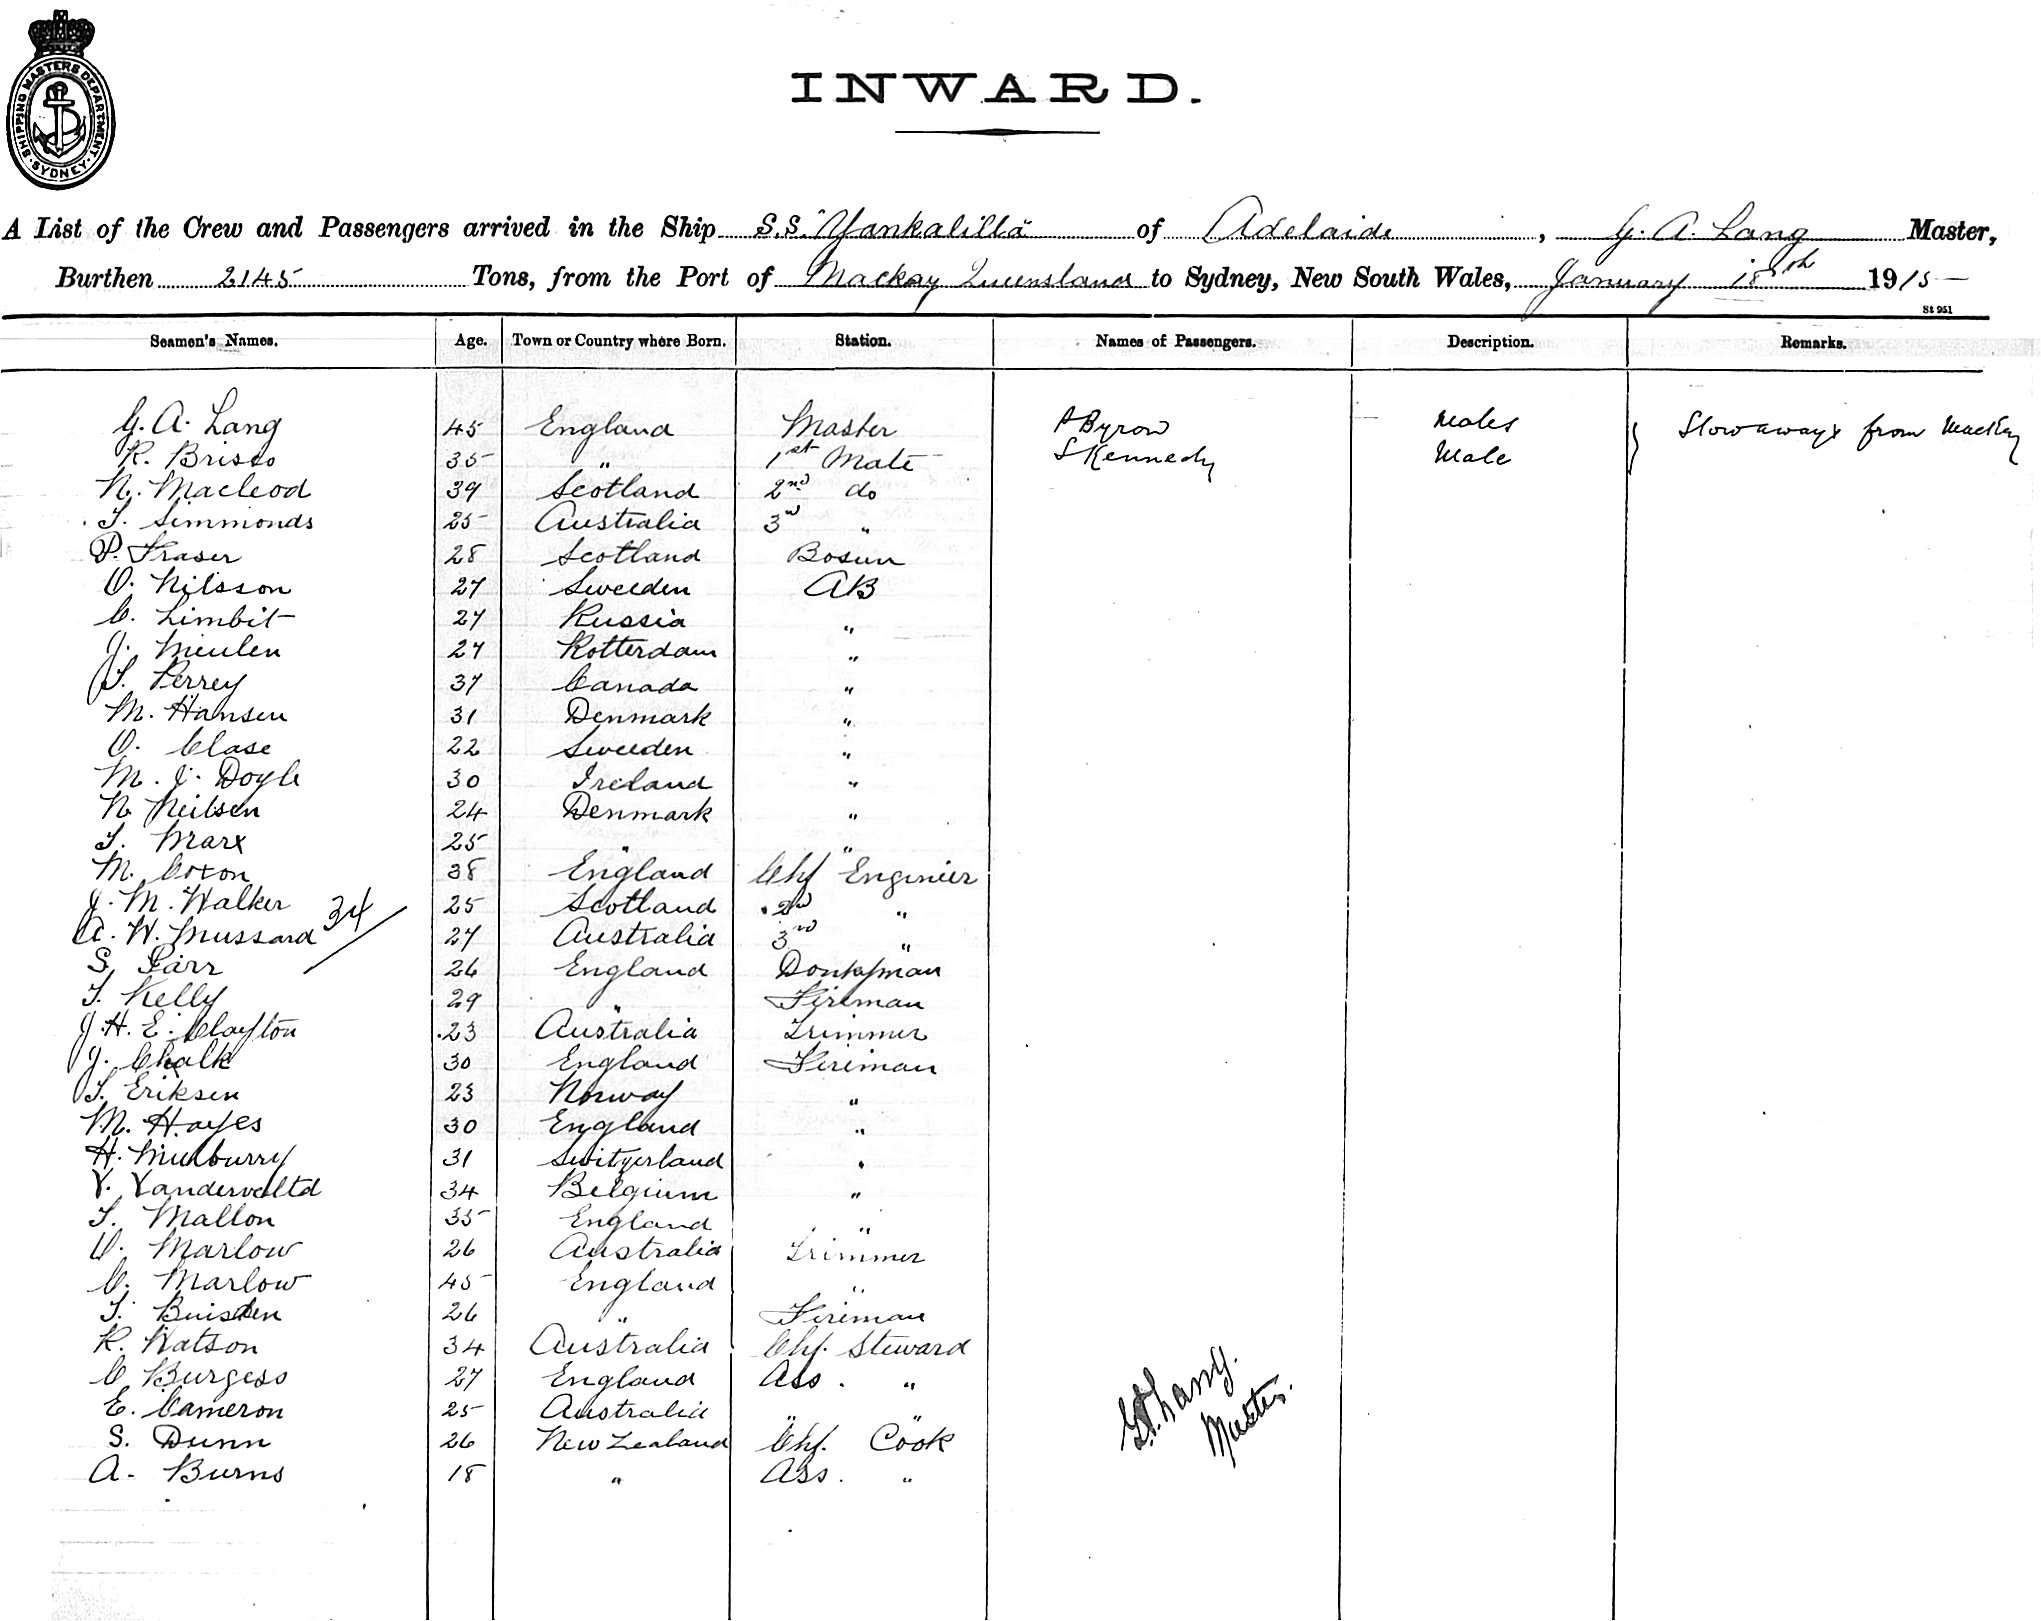 SHIPPING MASTERS DEPARTMENT. SYDNEY.
INWARD.
A List of the Crew and Passengers arrived in the Ship S.S. "Yankalilla" of Adelaide, G. A. Lang Master,
Burthen 2145 Tons, from the Port of Mackay Queensland to Sydney, New South Wales, January 18th 1915
St 951
Seamen's Names. Age. Town or Country where Born. Station. Names of Passengers. Description. Remarks.
G. A. Lang 45 England Master A Byron Males Stowaways from Mackay
R. Brisco 35 " 1st Mate S Kennedy Male
N. Macleod 39 Scotland 2nd do
T. Simmonds 25 Australia 3rd "
P. Fraser 28 Scotland Bosun
O. Nilsson 27 Sweeden AB
C. Limbit 27 Russia "
J. Meulen 27 Rotterdam "
T. Perrey 37 Canada "
M. Hansen 31 Denmark "
O. Clase 22 Sweeden "
M. J. Doyle 30 Ireland "
N. Neilsen 24 Denmark "
T. Marx 25 " "
M. Coxon 38 England Chf Engineer
J. M. Walker 25 Scotland 2nd "
34
A. W. Mussard 27 Australia 3rd "
S. Parr 26 England Donkyman
T. Kelly 29 " Fireman
J. H. E. Clayton 23 Australia Trimmer
J. Chalk 30 England Fireman
T. Eriksen 23 Norway "
M. Hayes 30 England "
H. Mulburry 31 Switzerland "
V. Vanderveltd 34 Belgium "
T. Mallon 35 England "
O. Marlow 26 Australia Trimmer
C. Marlow 45 England "
T. 26 " Fireman
R. Watson 34 Australia Chf. Steward
C Burgess 27 England Ass. "
E. Cameron 25 Australia " "
S. Dunn 26 New Zealand Chf. Cook
A. Burns 18 " Ass. "
G.A. Lang.
Master.